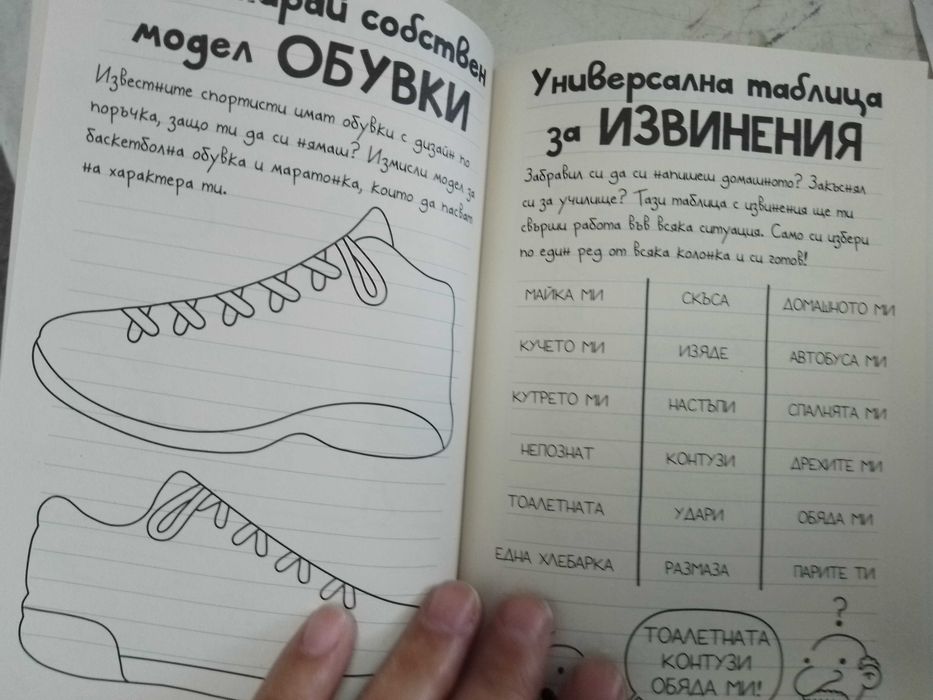 собствен
модел ОБУВКИ
Известните спортисти имат обувки с дизайн по
поръчка, защо ти да си нямаш? Измисли модел за
баскетболна обувка и маратонка, които да пасват
на характера ти.
Универсална таблица
за ИЗВИНЕНИЯ
Забравил си да си напишеш домашното? Закъснял
си за училище? Тази таблица с извинения ще ти
свърши работа във всяка ситуация. Само си избери
по един ред от всяка колонка и си готов!
МАЙКА МИ СКЪСА ДОМАШНОТО МИ
КУЧЕТО МИ ИЗЯДЕ АВТОБУСА МИ
КУТРЕТО МИ НАСТЪПИ СПАЛНЯТА МИ
НЕПОЗНАТ КОНТУЗИ ДРЕХИТЕ МИ
ТОАЛЕТНАТА УДАРИ ОБЯДА МИ
ЕДНА ХЛЕБАРКА РАЗМАЗА ПАРИТЕ ТИ
?
ТОАЛЕТНАТА
КОНТУЗИ
ОБЯДА МИ!